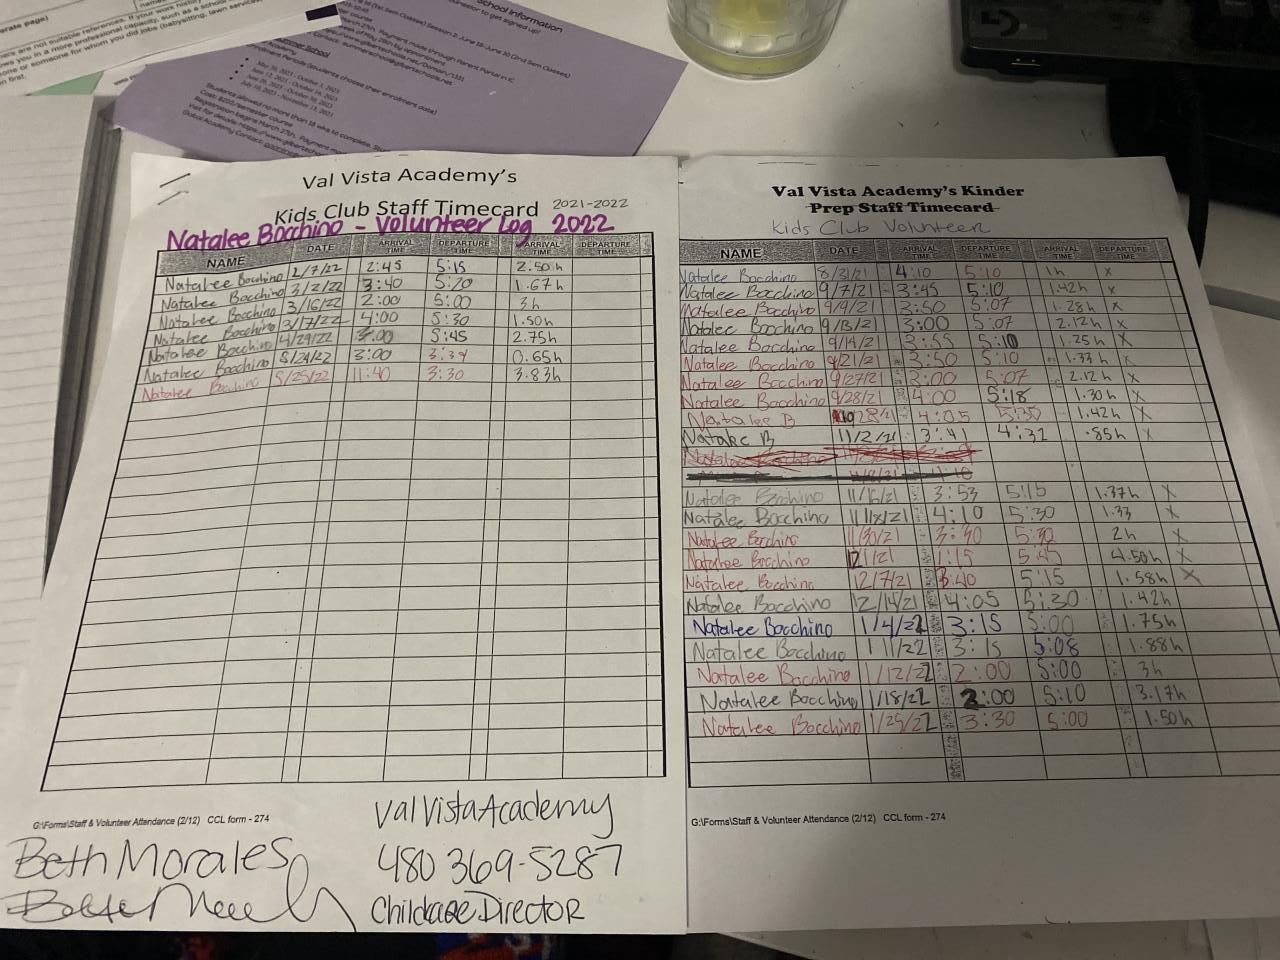 erate page)
names
are not suitable references. If your work history
ws you in a more professional capacity, such as a school
one or someone for whom you did jobs (babysitting, lawn service
n first.
School Information
Summer School
Students allowed no more than 18 wks to complete.
Cost: $200/semester course
Registration begins March 27th.
Val Vista Academy's
Kids Club Staff Timecard 2021-2022
Natalee Bocchino - Volunteer Log 2022
NAME DATE ARRIVAL TIME DEPARTURE TIME ARRIVAL TIME DEPARTURE TIME
Natalee Bocchino 2/7/22 2:45 5:15 2.50h
Natalee Bocchino 3/2/22 3:40 5:20 1.67h
Natalee Bocchino 3/16/22 2:00 5:00 3h
Natalee Bocchino 3/17/22 4:00 5:30 1.50h
Natalee Bocchino 4/29/22 3:00 5:45 2.75h
Natalee Bocchino 5/24/22 3:00 3:39 0.65h
Natalee Bocchino 5/25/22 11:40 3:30 3.83h
G:\Forms\Staff & Volunteer Attendance (2/12) CCL form - 274
Beth Morales
Val Vista Academy
480 369-5287
Childcare Director
Val Vista Academy's Kinder
Prep Staff Timecard
Kids Club Volunteer
NAME DATE ARRIVAL TIME DEPARTURE TIME ARRIVAL TIME DEPARTURE TIME
Natalee Bocchino 8/31/21 4:10 5:10 1h x
Natalee Bocchino 9/7/21 3:45 5:10 1.42h x
Natalee Bocchino 9/9/21 3:50 5:07 1.28h x
Natalee Bocchino 9/13/21 3:00 5:07 2.12h x
Natalee Bocchino 9/14/21 3:55 5:10 1.25h x
Natalee Bocchino 9/21/21 3:50 5:10 1.33h x
Natalee Bocchino 9/27/21 3:00 5:07 2.12h x
Natalee Bocchino 9/28/21 4:00 5:18 1.30h x
Natalee B 10/28/21 4:05 5:30 1.42h x
Natalee B 11/2/21 3:41 4:32 .85h x
Natalee Bocchino 11/16/21 3:53 5:15 1.37h x
Natalee Bocchino 11/18/21 4:10 5:30 1.33 x
Natalee Bocchino 11/30/21 3:30 5:30 2h x
Natalee Bocchino 12/1/21 1:15 5:45 4.50h x
Natalee Bocchino 12/7/21 3:40 5:15 1.58h x
Natalee Bocchino 12/14/21 4:05 5:30 1.42h
Natalee Bocchino 1/4/22 3:15 5:00 1.75h
Natalee Bocchino 1/11/22 3:15 5:08 1.88h
Natalee Bocchino 1/12/22 2:00 5:00 3h
Natalee Bocchino 1/18/22 2:00 5:10 3.17h
Natalee Bocchino 1/25/22 3:30 5:00 1.50h
G:\Forms\Staff & Volunteer Attendance (2/12) CCL form - 274